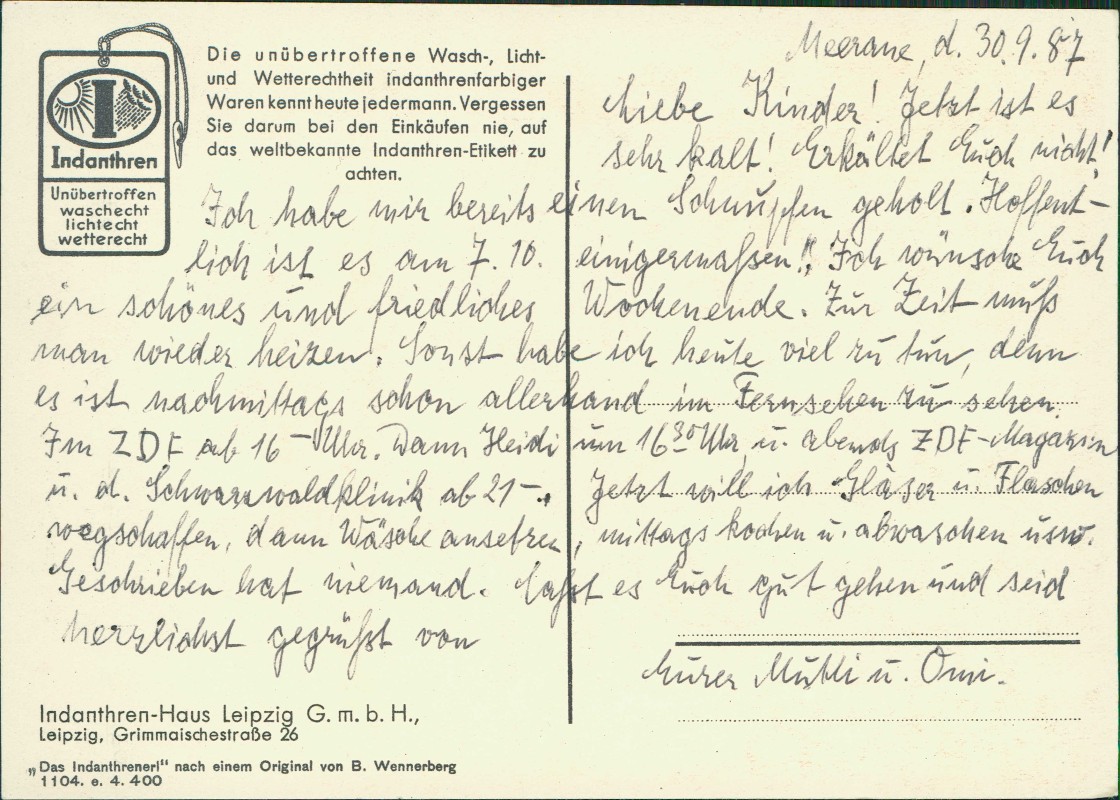 Indanthren
Unübertroffen
waschecht
lichtecht
wetterecht
Die unübertroffene Wasch-, Licht-
und Wetterechtheit indanthrenfarbiger
Waren kennt heute jedermann. Vergessen
Sie darum bei den Einkäufen nie, auf
das weltbekannte Indanthren-Etikett zu
achten.
Meerane, d. 30.9.87
Liebe Kinder! Jetzt ist es
sehr kalt! Erkältet Euch nicht!
Ich habe mir bereits einen Schnupfen geholt. Hoffent-
lich ist es am 7. 10. einigermaßen!! Ich wünsche Euch
ein schönes und friedliches Wochenende. Zur Zeit muß
man wieder heizen. Sonst habe ich heute viel zu tun, denn
es ist nachmittags schon allerhand im Fernsehen zu sehen.
Im ZDF ab 16 – Uhr. Dann Heidi um 16 30 Uhr u. abends ZDF-Magazin
u. d. Schwarzwaldklinik ab 21 –. Jetzt will ich Gläser u. Flaschen
wegschaffen, dann Wäsche ansetzen, mittags kochen u. abwaschen usw.
Geschrieben hat niemand. Laßt es Euch gut gehen und seid
herzlichst gegrüßt von
Eurer Mutti u. Omi.
Indanthren-Haus Leipzig G. m. b. H.,
Leipzig, Grimmaischestraße 26
„Das Indanthrenerl“ nach einem Original von B. Wennerberg
1104. e. 4. 400